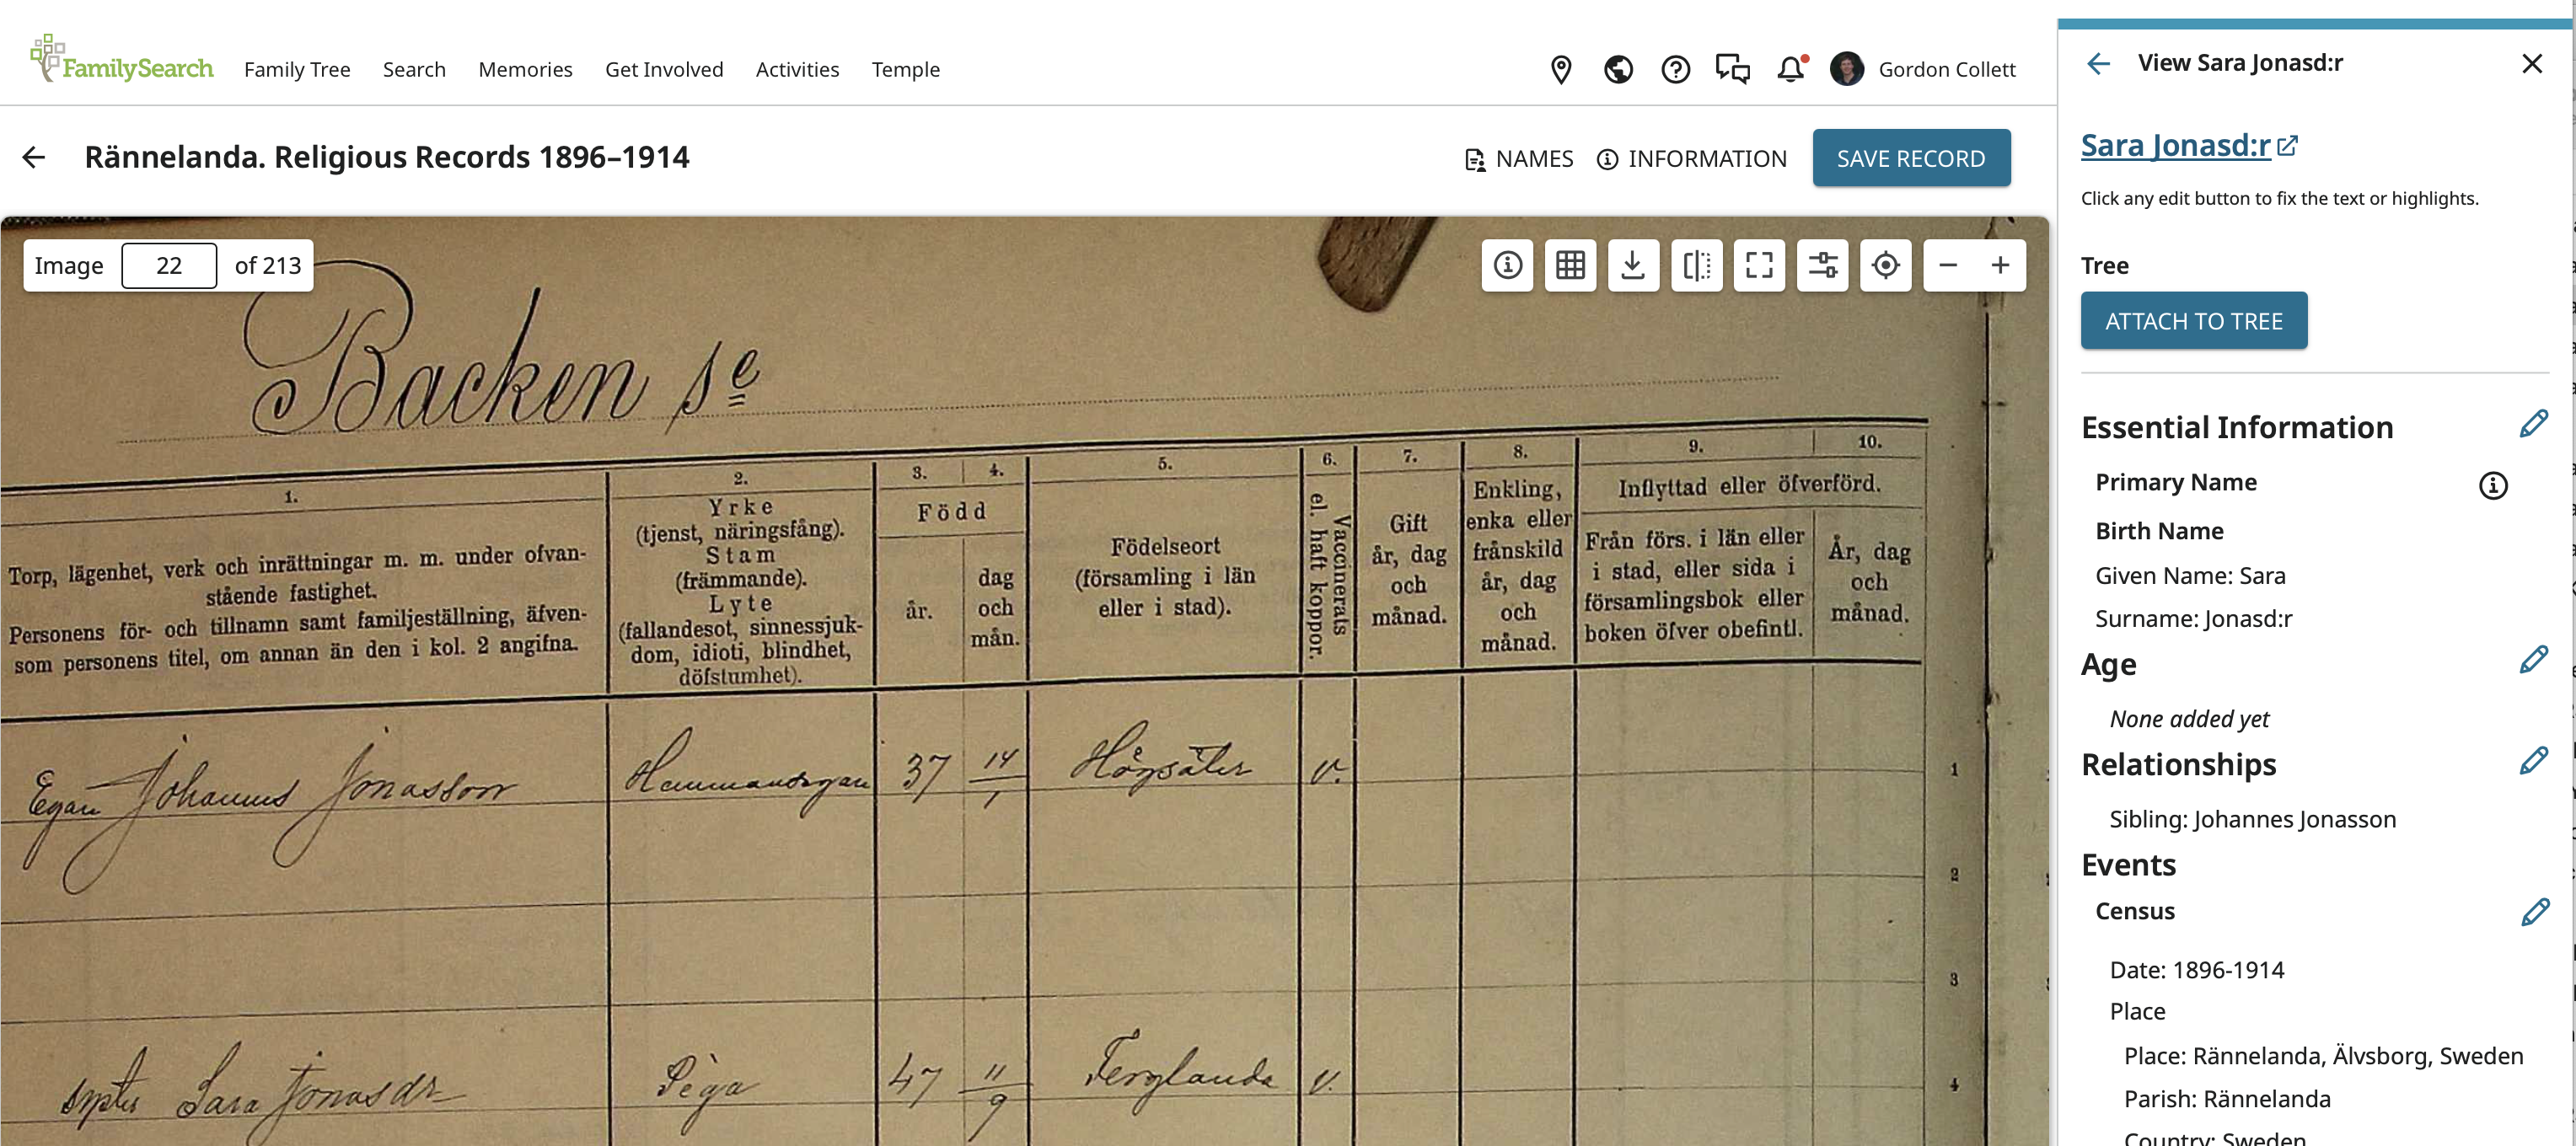 FamilySearch
Family Tree
Search
Memories
Get Involved
Activities
Temple
Gordon Collett
Rännelanda. Religious Records 1896–1914
NAMES
INFORMATION
SAVE RECORD
Image 22 of 213
Backen se
1.
Torp, lägenhet, verk och inrättningar m. m. under ofvan-
stående fastighet.
Personens för- och tillnamn samt familjeställning, äfven-
som personens titel, om annan än den i kol. 2 angifna.
2.
Yrke
(tjenst, näringsfång).
Stam
(främmande).
Lyte
(fallandesot, sinnessjuk-
dom, idioti, blindhet,
döfstumhet).
3. 4.
Född
år.
dag
och
mån.
5.
Födelseort
(församling i län
eller i stad).
6.
Vaccinerats
el. haft koppor.
7.
Gift
år, dag
och
månad.
8.
Enkling,
enka eller
frånskild
år, dag
och
månad.
9. 10.
Inflyttad eller öfverförd.
Från förs. i län eller
i stad, eller sida i
församlingsbok eller
boken öfver obefintl.
År, dag
och
månad.
Egan Johannes Jonasson Hemmansegare 37 14/1 Högsäter v. 1
2
3
Syster Sara Jonasdr Piga 47 11/9 Ferglanda v. 4
View Sara Jonasd:r
Sara Jonasd:r
Click any edit button to fix the text or highlights.
Tree
ATTACH TO TREE
Essential Information
Primary Name
Birth Name
Given Name: Sara
Surname: Jonasd:r
Age
None added yet
Relationships
Sibling: Johannes Jonasson
Events
Census
Date: 1896-1914
Place
Place: Rännelanda, Älvsborg, Sweden
Parish: Rännelanda
Country: Sweden